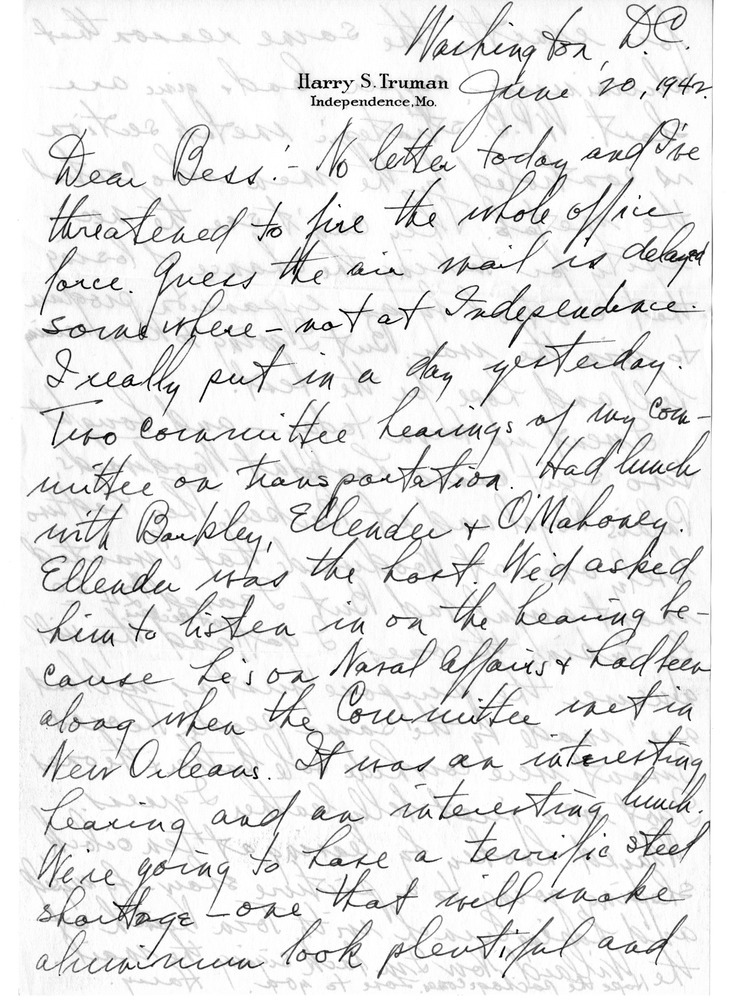 Washington, D.C.
Harry S. Truman
Independence, Mo.
June 20, 1942.
Dear Bess:- No letter today and I've
threatened to fire the whole office
force. Guess the air mail is delayed
somewhere - not at Independence.
I really put in a day yesterday.
Two committee hearings of my com-
mittee on transportation. Had lunch
with Barkley, Ellender + O'Mahoney.
Ellender was the host. We'd asked
him to listen in on the hearing be-
cause he's on Naval Affairs + had been
along when the Committee met in
New Orleans. It was an interesting
hearing and an interesting lunch.
We're going to have a terrific steel
shortage - one that will make
aluminum look plentiful and